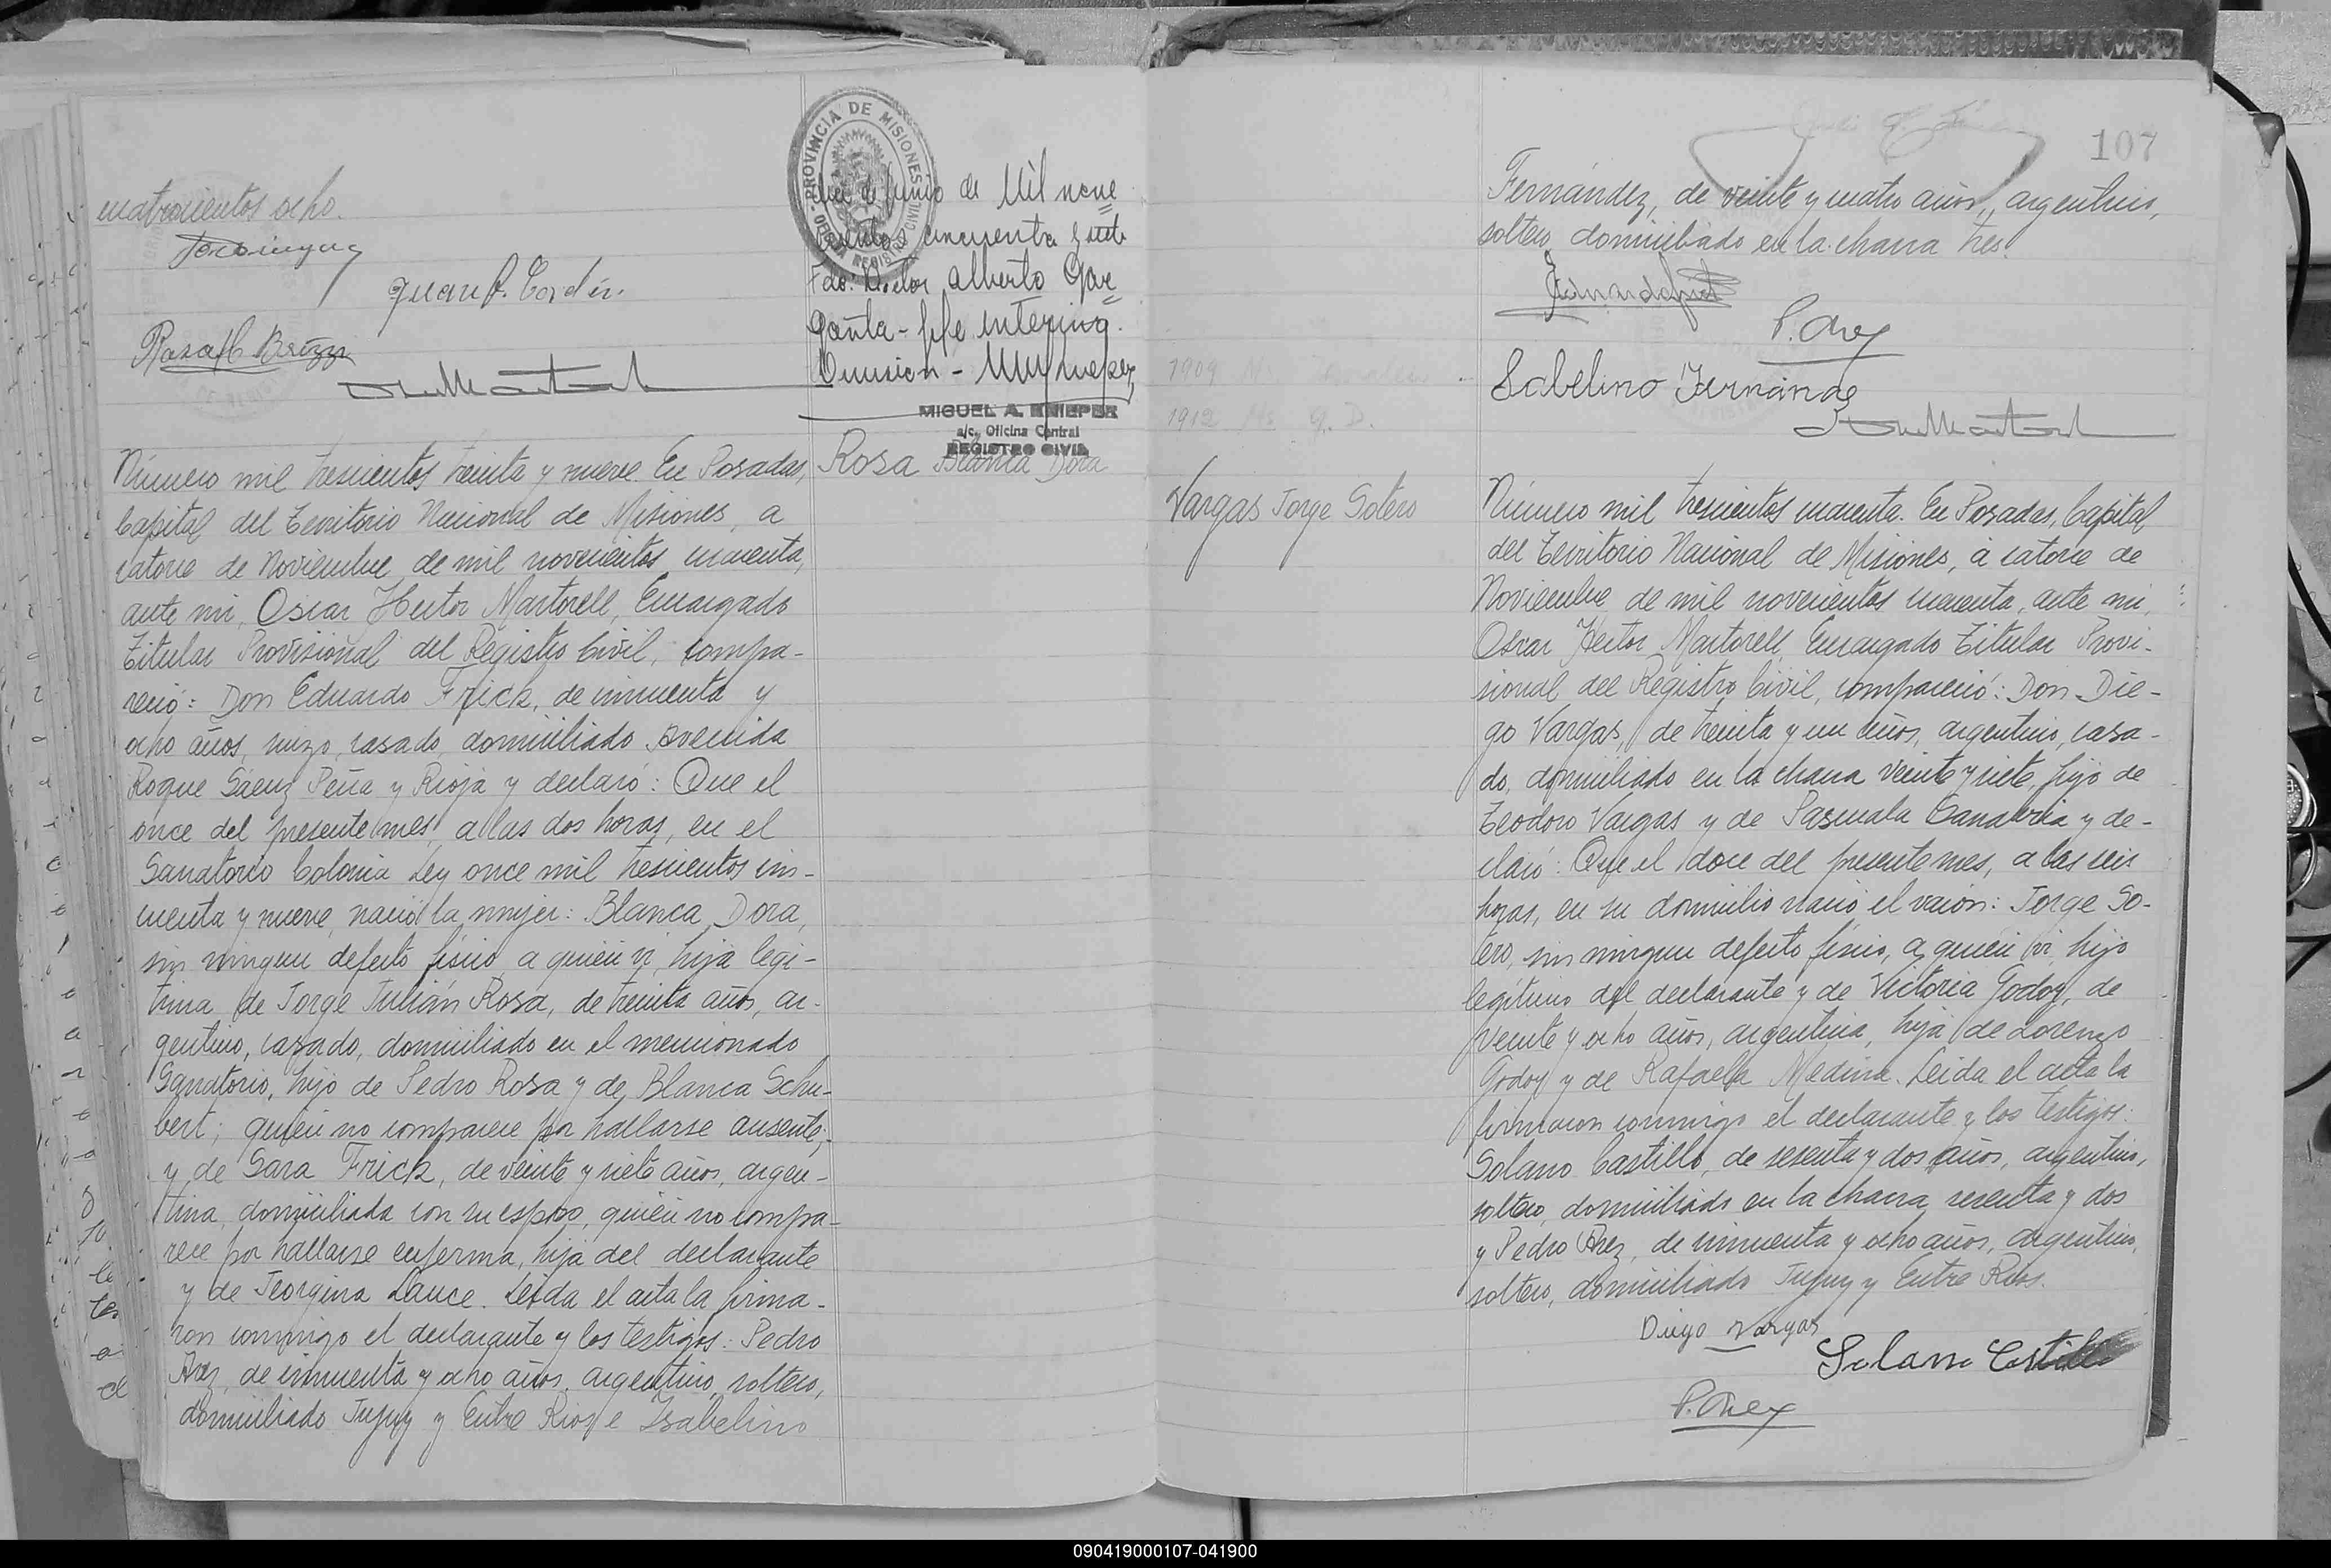 cuatrocientos ocho.
Juan A. Cordin.
PROVINCIA DE MISIONES
de Junio de Mil nove=
cientos cincuenta y siete
Fdo: Doctor Alberto Gar=
ganta - Jefe interino.
División -
MIGUEL A. KNIEPER
a/c. Oficina Central
REGISTRO CIVIL
Rosa Blanca Dora
Número mil trescientos treinta y nueve. En Posadas,
Capital del Territorio Nacional de Misiones, a
catorce de Noviembre de mil novecientos cuarenta,
ante mi, Oscar Hector Martorell, Encargado
Titular Provisional del Registro Civil, compa-
reció: Don Eduardo Frick, de cincuenta y
ocho años, suizo, casado, domiciliado Avenida
Roque Sáenz Peña y Rioja y declaró: Que el
once del presente mes, a las dos horas, en el
Sanatorio Colonia Ley once mil trescientos cin-
cuenta y nueve, nació la mujer: Blanca Dora,
sin ningun defecto físico, a quien vi, hija legi-
tima de Jorge Julián Rosa, de treinta años, ar-
gentino, casado, domiciliado en el mencionado
Sanatorio, hijo de Pedro Rosa y de Blanca Schu-
bert; quien no comparece por hallarse ausente;
y de Sara Frick, de veinte y siete años, argen-
tina, domiciliada con su esposo, quien no compa-
rece por hallarse enferma, hija del declarante
y de Jeorgina Lauce. Leida el acta la firma-
ron conmigo el declarante y los testigos: Pedro
Arez, de cincuenta y ocho años, argentino, soltero,
domiciliado Jujuy y Entre Rios e Isabelino
107
Fernández, de veinte y cuatro años, argentino,
soltero, domiciliado en la chacra tres.
P. Arez
Isabelino Fernández
1909
1912
Vargas Jorge Sotero
Número mil trescientos cuarenta. En Posadas, Capital
del Territorio Nacional de Misiones, á catorce de
Noviembre de mil novecientos cuarenta, ante mi,
Oscar Hector Martorell Encargado Titular Provi-
sional del Registro Civil, compareció: Don Die-
go Vargas, de treinta y un años, argentino, casa-
do, domiciliado en la chacra veinte y siete, hijo de
Teodoro Vargas y de Pascuala Canateria y de-
claró: Que el doce del presente mes, a las seis
horas, en su domicilio nació el varón: Jorge So-
tero, sin ningun defecto físico, a quien vi, hijo
legítimo del declarante y de Victoria Godoy, de
veinte y ocho años, argentina, hija de Lorenzo
Godoy y de Rafaela Medina. Leida el acta la
firmaron conmigo el declarante y los testigos:
Solano Castillo, de sesenta y dos años, argentino,
soltero, domiciliado en la chacra sesenta y dos
y Pedro Arez, de cincuenta y ocho años, argentino,
soltero, domiciliado Jujuy y Entre Rios.
Diego Vargas
Solano Castillo
P. Arez
090419000107-041900